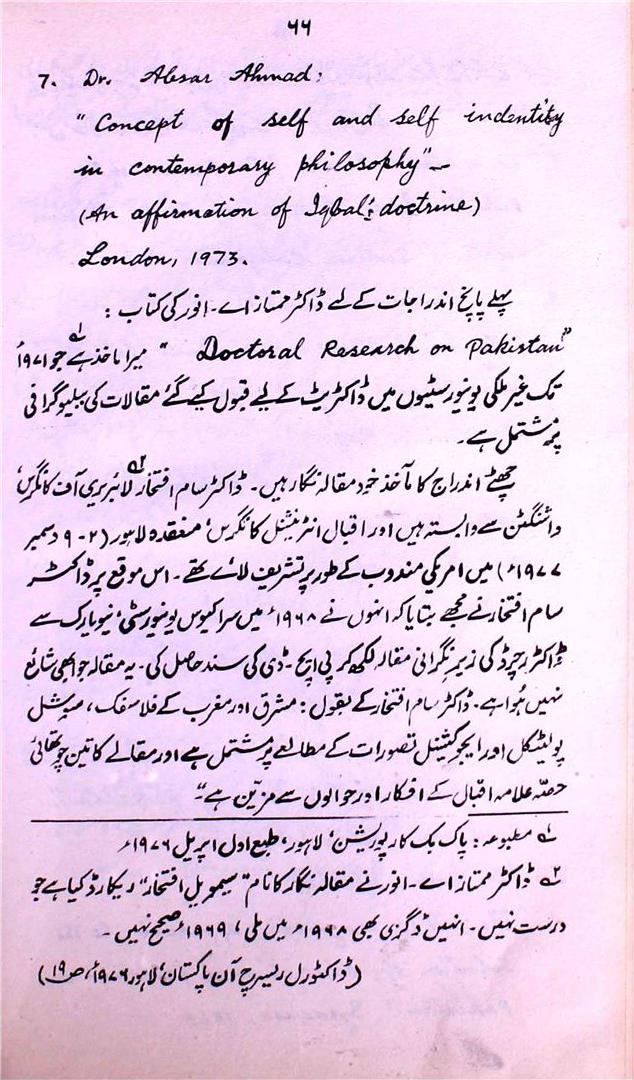 ۶۶
7. Dr. Absar Ahmad:
"Concept of self and self indentity
in contemporary philosophy"—
(An affirmation of Iqbal's doctrine)
London, 1973.
پہلے پانچ اندراجات کے لیے ڈاکٹر ممتاز اے۔ انور کی کتاب :
"Doctoral Research on Pakistan" میرا ماخذ ہے۱؎ جو ۱۹۷۱ء
تک غیر ملکی یونیورسٹیوں میں ڈاکٹریٹ کے لیے قبول کیے گئے مقالات کی ببلیوگرافی
پر مشتمل ہے۔
چھٹے اندراج کا مآخذ خود مقالہ نگار ہیں۔ ڈاکٹر سام افتخار۲؎ لائبریری آف کانگرس
واشنگٹن سے وابستہ ہیں اور اقبال انٹرنیشنل کانگرس، منعقدہ لاہور (۲ - ۹ دسمبر
۱۹۷۷ء) میں امریکی مندوب کے طور پر تشریف لائے تھے۔ اس موقع پر ڈاکٹر
سام افتخار نے مجھے بتایا کہ انہوں نے ۱۹۶۸ء میں سراکیوس یونیورسٹی، نیویارک سے
ڈاکٹر رچرڈ کی زیر نگرانی مقالہ لکھ کر پی ایچ۔ ڈی کی سند حاصل کی۔ یہ مقالہ جو ابھی شائع
نہیں ہوا ہے۔ ڈاکٹر سام افتخار کے بقول : مشرق اور مغرب کے فلاسفک، سوشل
پولیٹکل اور ایجوکیشنل تصورات کے مطالعے پر مشتمل ہے اور مقالے کا تین چوتھائی
حصّہ علامہ اقبال کے افکار اور حوالوں سے مزیّن ہے"
۱؎ مطبوعہ : پاک بک کارپوریشن، لاہور، طبع اول اپریل ۱۹۷۶ء
۲؎ ڈاکٹر ممتاز اے۔ انور نے مقالہ نگار کا نام "سیمویل افتخار" ریکارڈ کیا ہے جو
درست نہیں۔ انہیں ڈگری بھی ۱۹۶۸ء میں ملی، ۱۹۶۹ء صحیح نہیں۔
(ڈاکٹورل ریسرچ آن پاکستان، لاہور ۱۹۷۶ء، ص ۱۹)